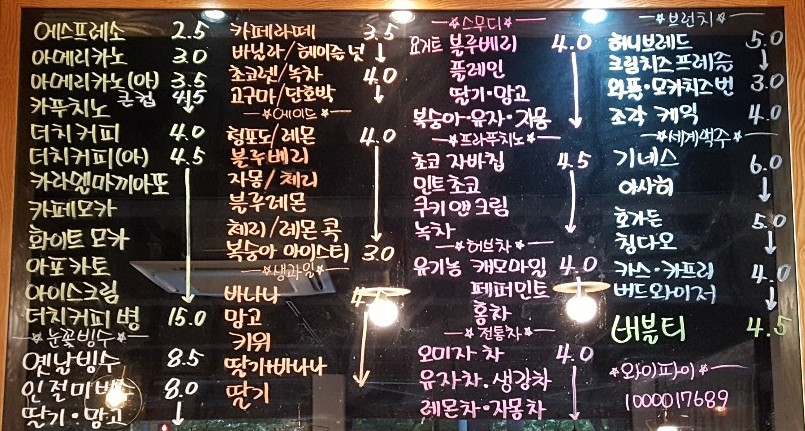 에스프레소 2.5
아메리카노 3.0
아메리카노(아) 3.5
큰컵 4.5
카푸치노
더치커피 4.0
더치커피(아) 4.5
카라멜마끼아또
카페모카
화이트 모카
아포카토
아이스크림
더치커피 병 15.0
눈꽃빙수
옛날빙수 8.5
인절미빙수 8.0
딸기·망고
카페라떼 3.5
바닐라/헤이즐넛
초코렛/녹차 4.0
고구마/단호박
에이드
청포도/레몬 4.0
블루베리
자몽/체리
블루레몬
체리/레몬 콕
복숭아 아이스티 3.0
생과일
바나나
망고
키위
딸기+바나나
딸기
스무디
요거트 블루베리 4.0
플레인
딸기·망고
복숭아·유자·자몽
프라푸치노
초코 자바칩 4.5
민트초코
쿠키 앤 크림
녹차
허브차
유기농 캐모마일 4.0
페퍼민트
홍차
전통차
오미자 차 4.0
유자차·생강차
레몬차·자몽차
브런치
허니브레드 5.0
크림치즈 프레즐
와플·모카치즈번 3.0
조각 케익 4.0
세계맥주
기네스 6.0
아사히
호가든 5.0
칭다오
카스·카프리 4.0
버드와이저
버블티 4.5
와이파이
1000017689